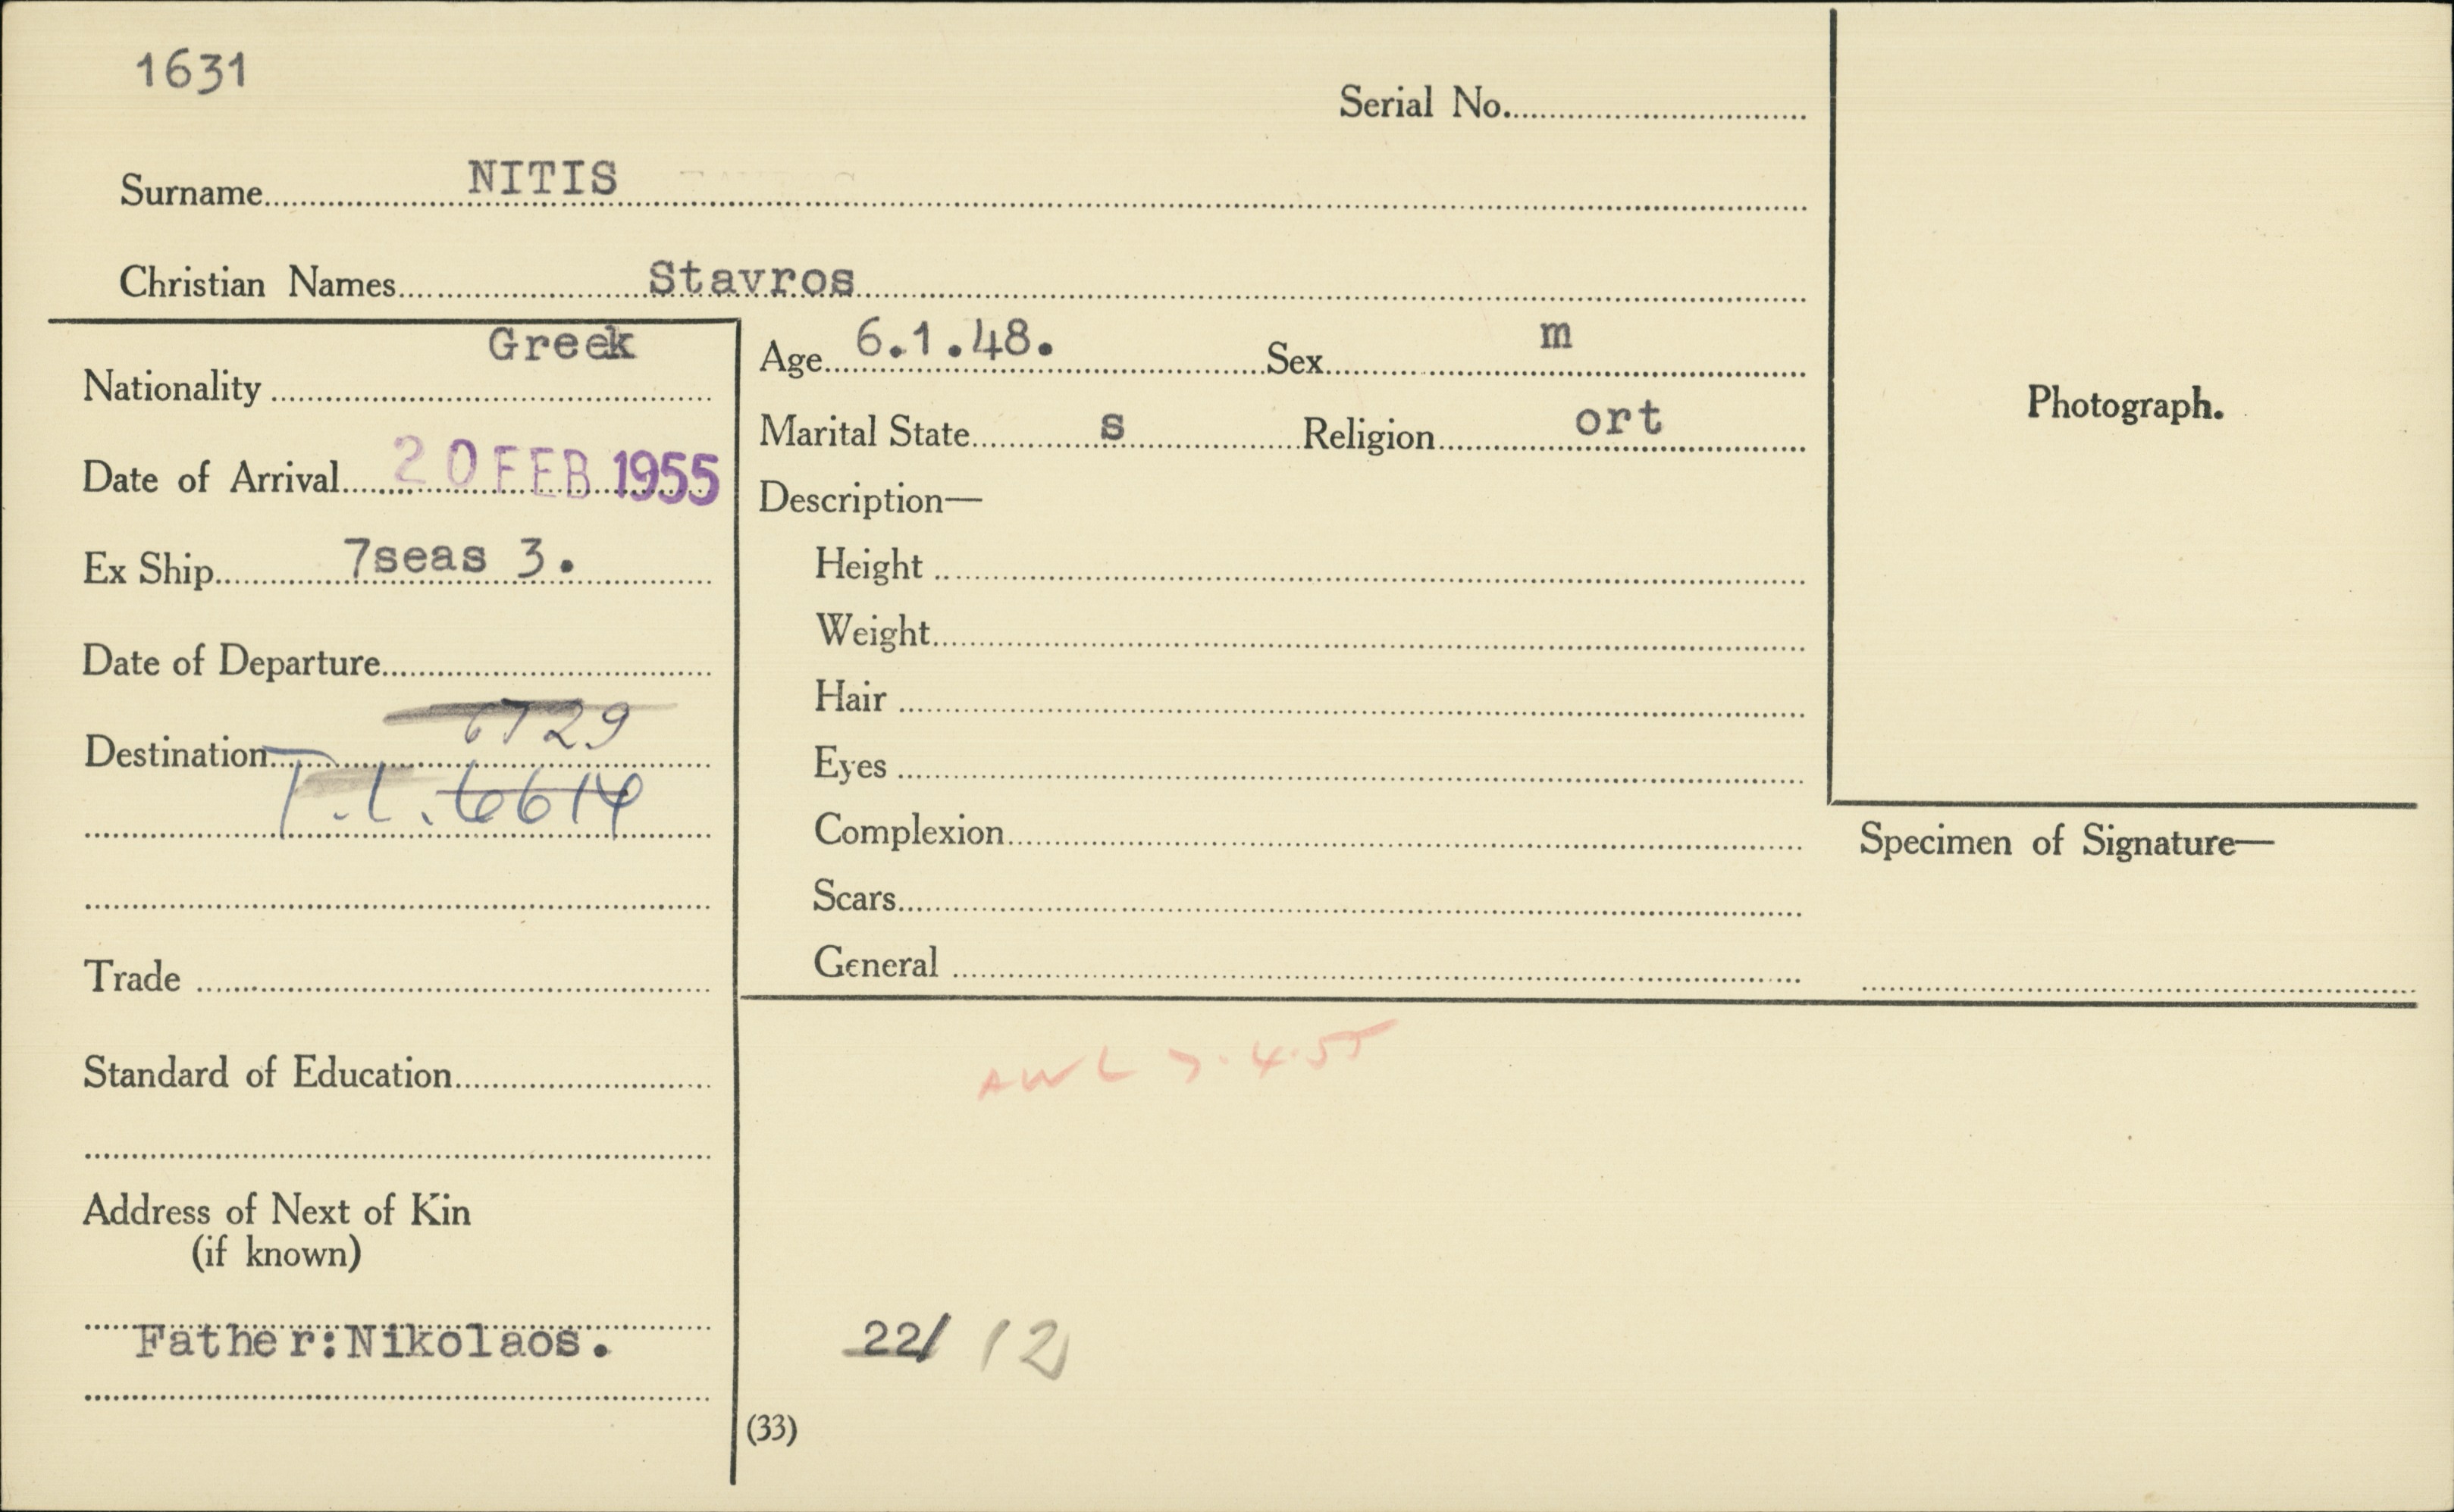 1631
Serial No.
Surname NITIS
Christian Names Stavros
Nationality Greek
Date of Arrival 20 FEB 1955
Ex Ship 7seas 3.
Date of Departure
Destination 6729
T.L. 6614
Trade
Standard of Education
Address of Next of Kin
(if known)
Father:Nikolaos.
Age 6.1.48. Sex m
Marital State s Religion ort
Description—
Height
Weight
Hair
Eyes
Complexion
Scars
General
Photograph.
Specimen of Signature—
AWL 7.4.55
22/ 12
(33)